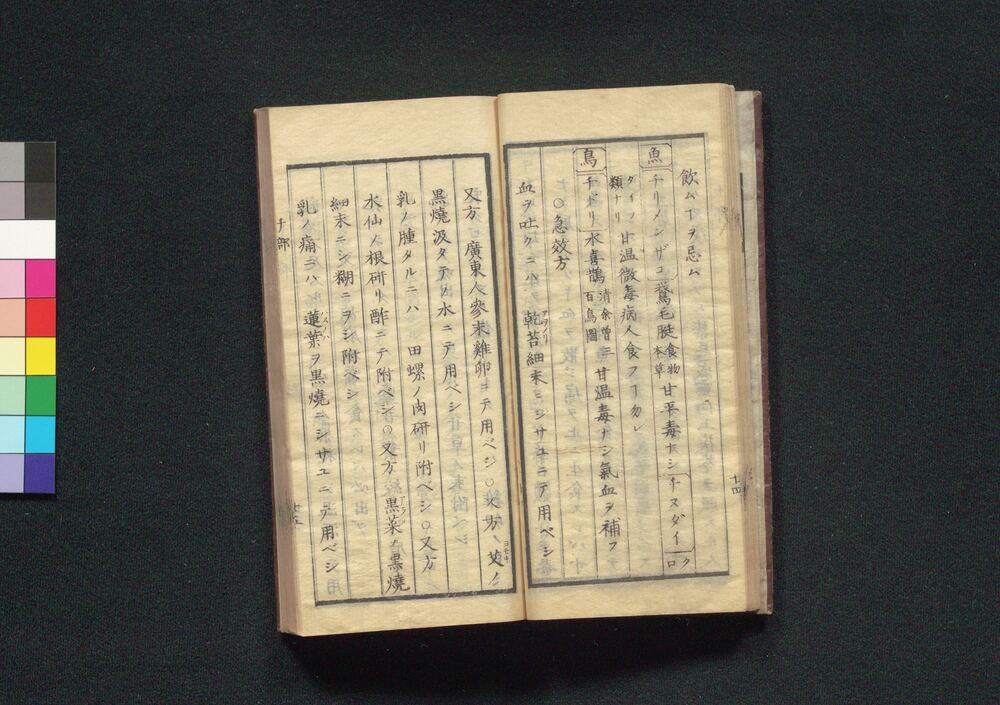 飲ムヿヲ忌ム
魚 チリメンザコ 鵞毛脡 食物本草 甘平毒ナシ チヌダイ クロ
タイノ類ナリ 甘温微毒病人食フヿ勿レ
鳥 チドリ 水喜鵲 清余曽三百鳥圖 甘温毒ナシ氣血ヲ補フ
○急效方
血ヲ吐クニハ 乾苔細末ニシサユニテ用ベシ
十四
又方 廣東人參末雞卵ニテ用ベシ ○又方
黒燒汲タテノ水ニテ用ベシ
乳ノ腫タルニハ 田螺ノ肉研リ附ベシ ○又方
水仙ノ根研リ酢ニテ附ベシ ○又方 黒菜ノ黒燒
細末ニシ糊ニヲシ附ベシ
乳ノ痛ニハ 蓮葉ヲ黒燒ニシサユニテ用ベシ
チ部